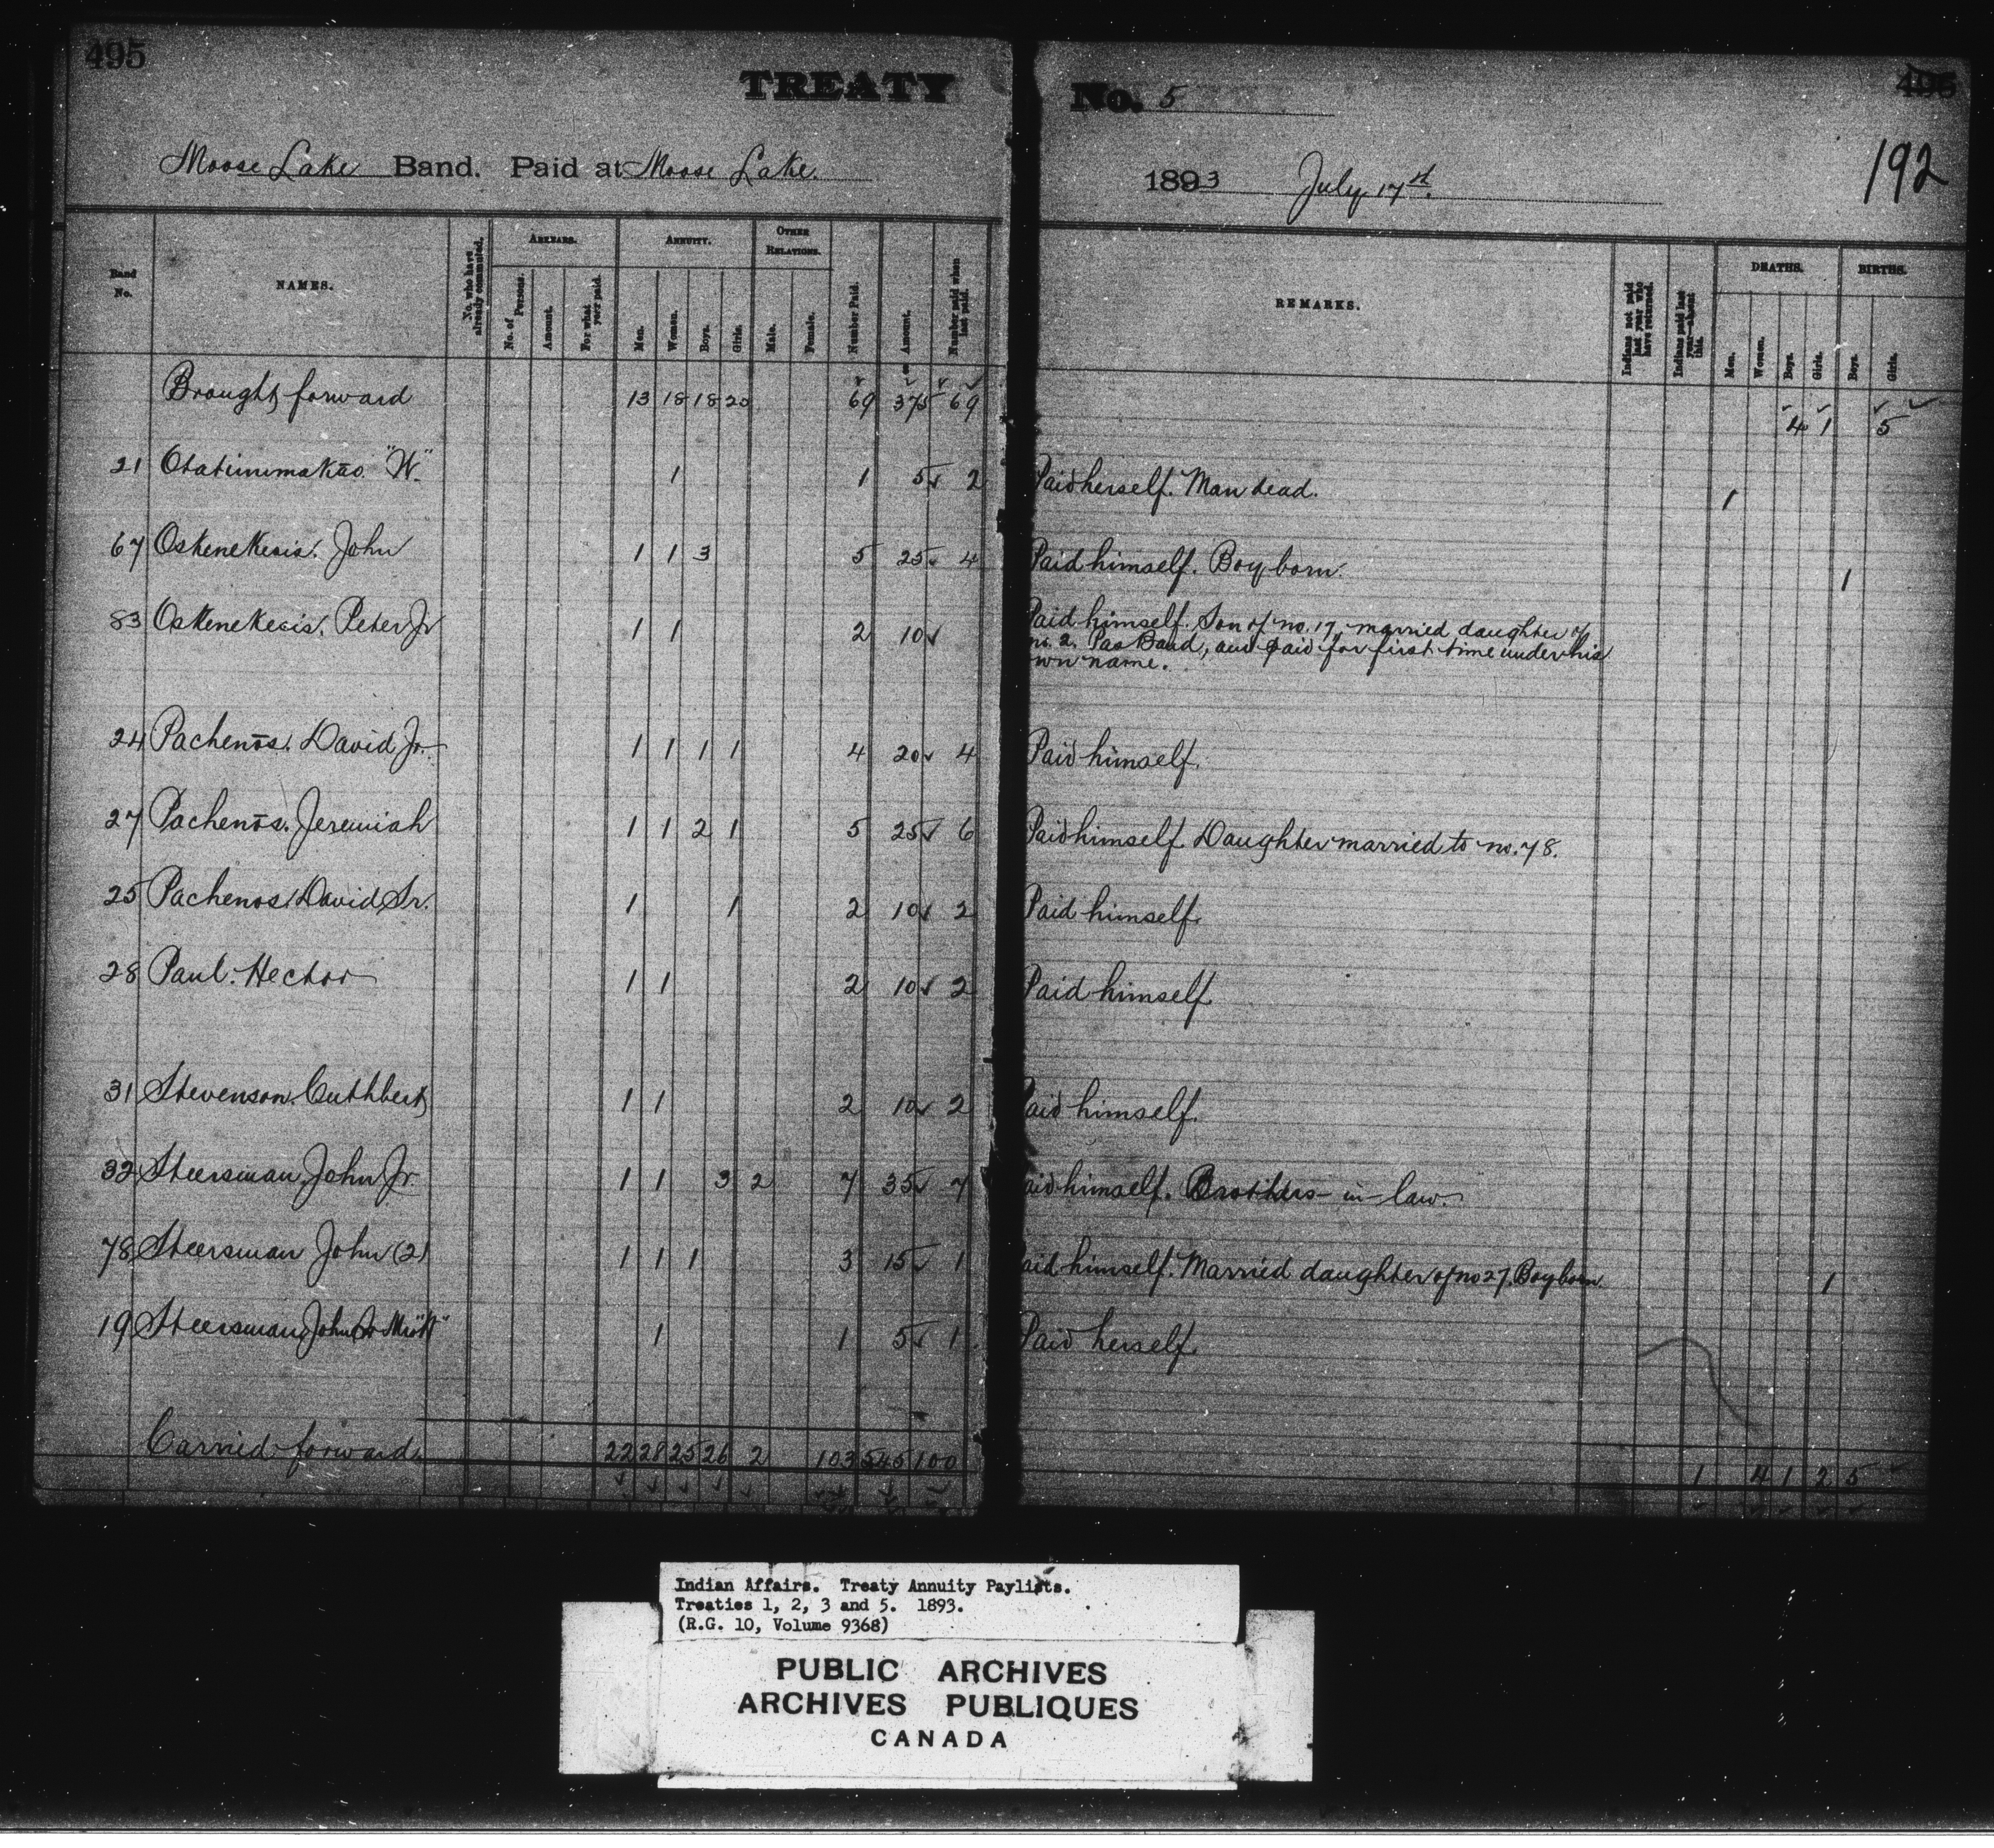 495
TREATY No. 5
495
192
Moose Lake Band. Paid at Moose Lake.
1893 July 17th.
Band No.
NAMES.
No. who have already commuted.
ARREARS.
No. of Persons.
Amount.
For what year paid.
ANNUITY.
Men.
Women.
Boys.
Girls.
OTHER RELATIONS.
Male.
Female.
Number Paid.
Amount.
Number paid when last paid.
REMARKS.
Indians not paid last year who have returned.
Indians paid last year—absent this.
DEATHS.
Men.
Women.
Boys.
Girls.
BIRTHS.
Boys.
Girls.
Brought forward 13 18 18 20 69 375 69 4 1 5
21 "W." 1 1 5 2 Paid herself. Man dead. 1
67 Oskenekesis. John 1 1 3 5 25 4 Paid himself. Boy born. 1
83 Oskenekesis. Peter Jr 1 1 2 10 Paid himself. Son of no. 17, married daughter of
no. 2. Pas Band, and paid for first time under his
own name.
24 Pachenōs. David Jr. 1 1 1 1 4 20 4 Paid himself.
27 Pachenōs. Jeremiah 1 1 2 1 5 25 6 Paid himself. Daughter married to no. 78.
25 Pachenos David Sr. 1 1 2 10 2 Paid himself.
28 Paul. Hector 1 1 2 10 2 Paid himself
31 Stevenson. Cuthbert 1 1 2 10 2 Paid himself.
32 Steersman, John Jr. 1 1 3 2 7 35 7 Paid himself. Brothers-in-law.
78 Steersman John (2) 1 1 1 3 15 1 Paid himself. Married daughter of no 27. Boy born 1
19 Steersman, John 1 1 5 1 Paid herself.
Carried forward 22 28 25 26 2 103 545 100 1 4 1 2 5
Indian Affairs. Treaty Annuity Paylists.
Treaties 1, 2, 3 and 5. 1893.
(R.G. 10, Volume 9368)
PUBLIC ARCHIVES
ARCHIVES PUBLIQUES
CANADA